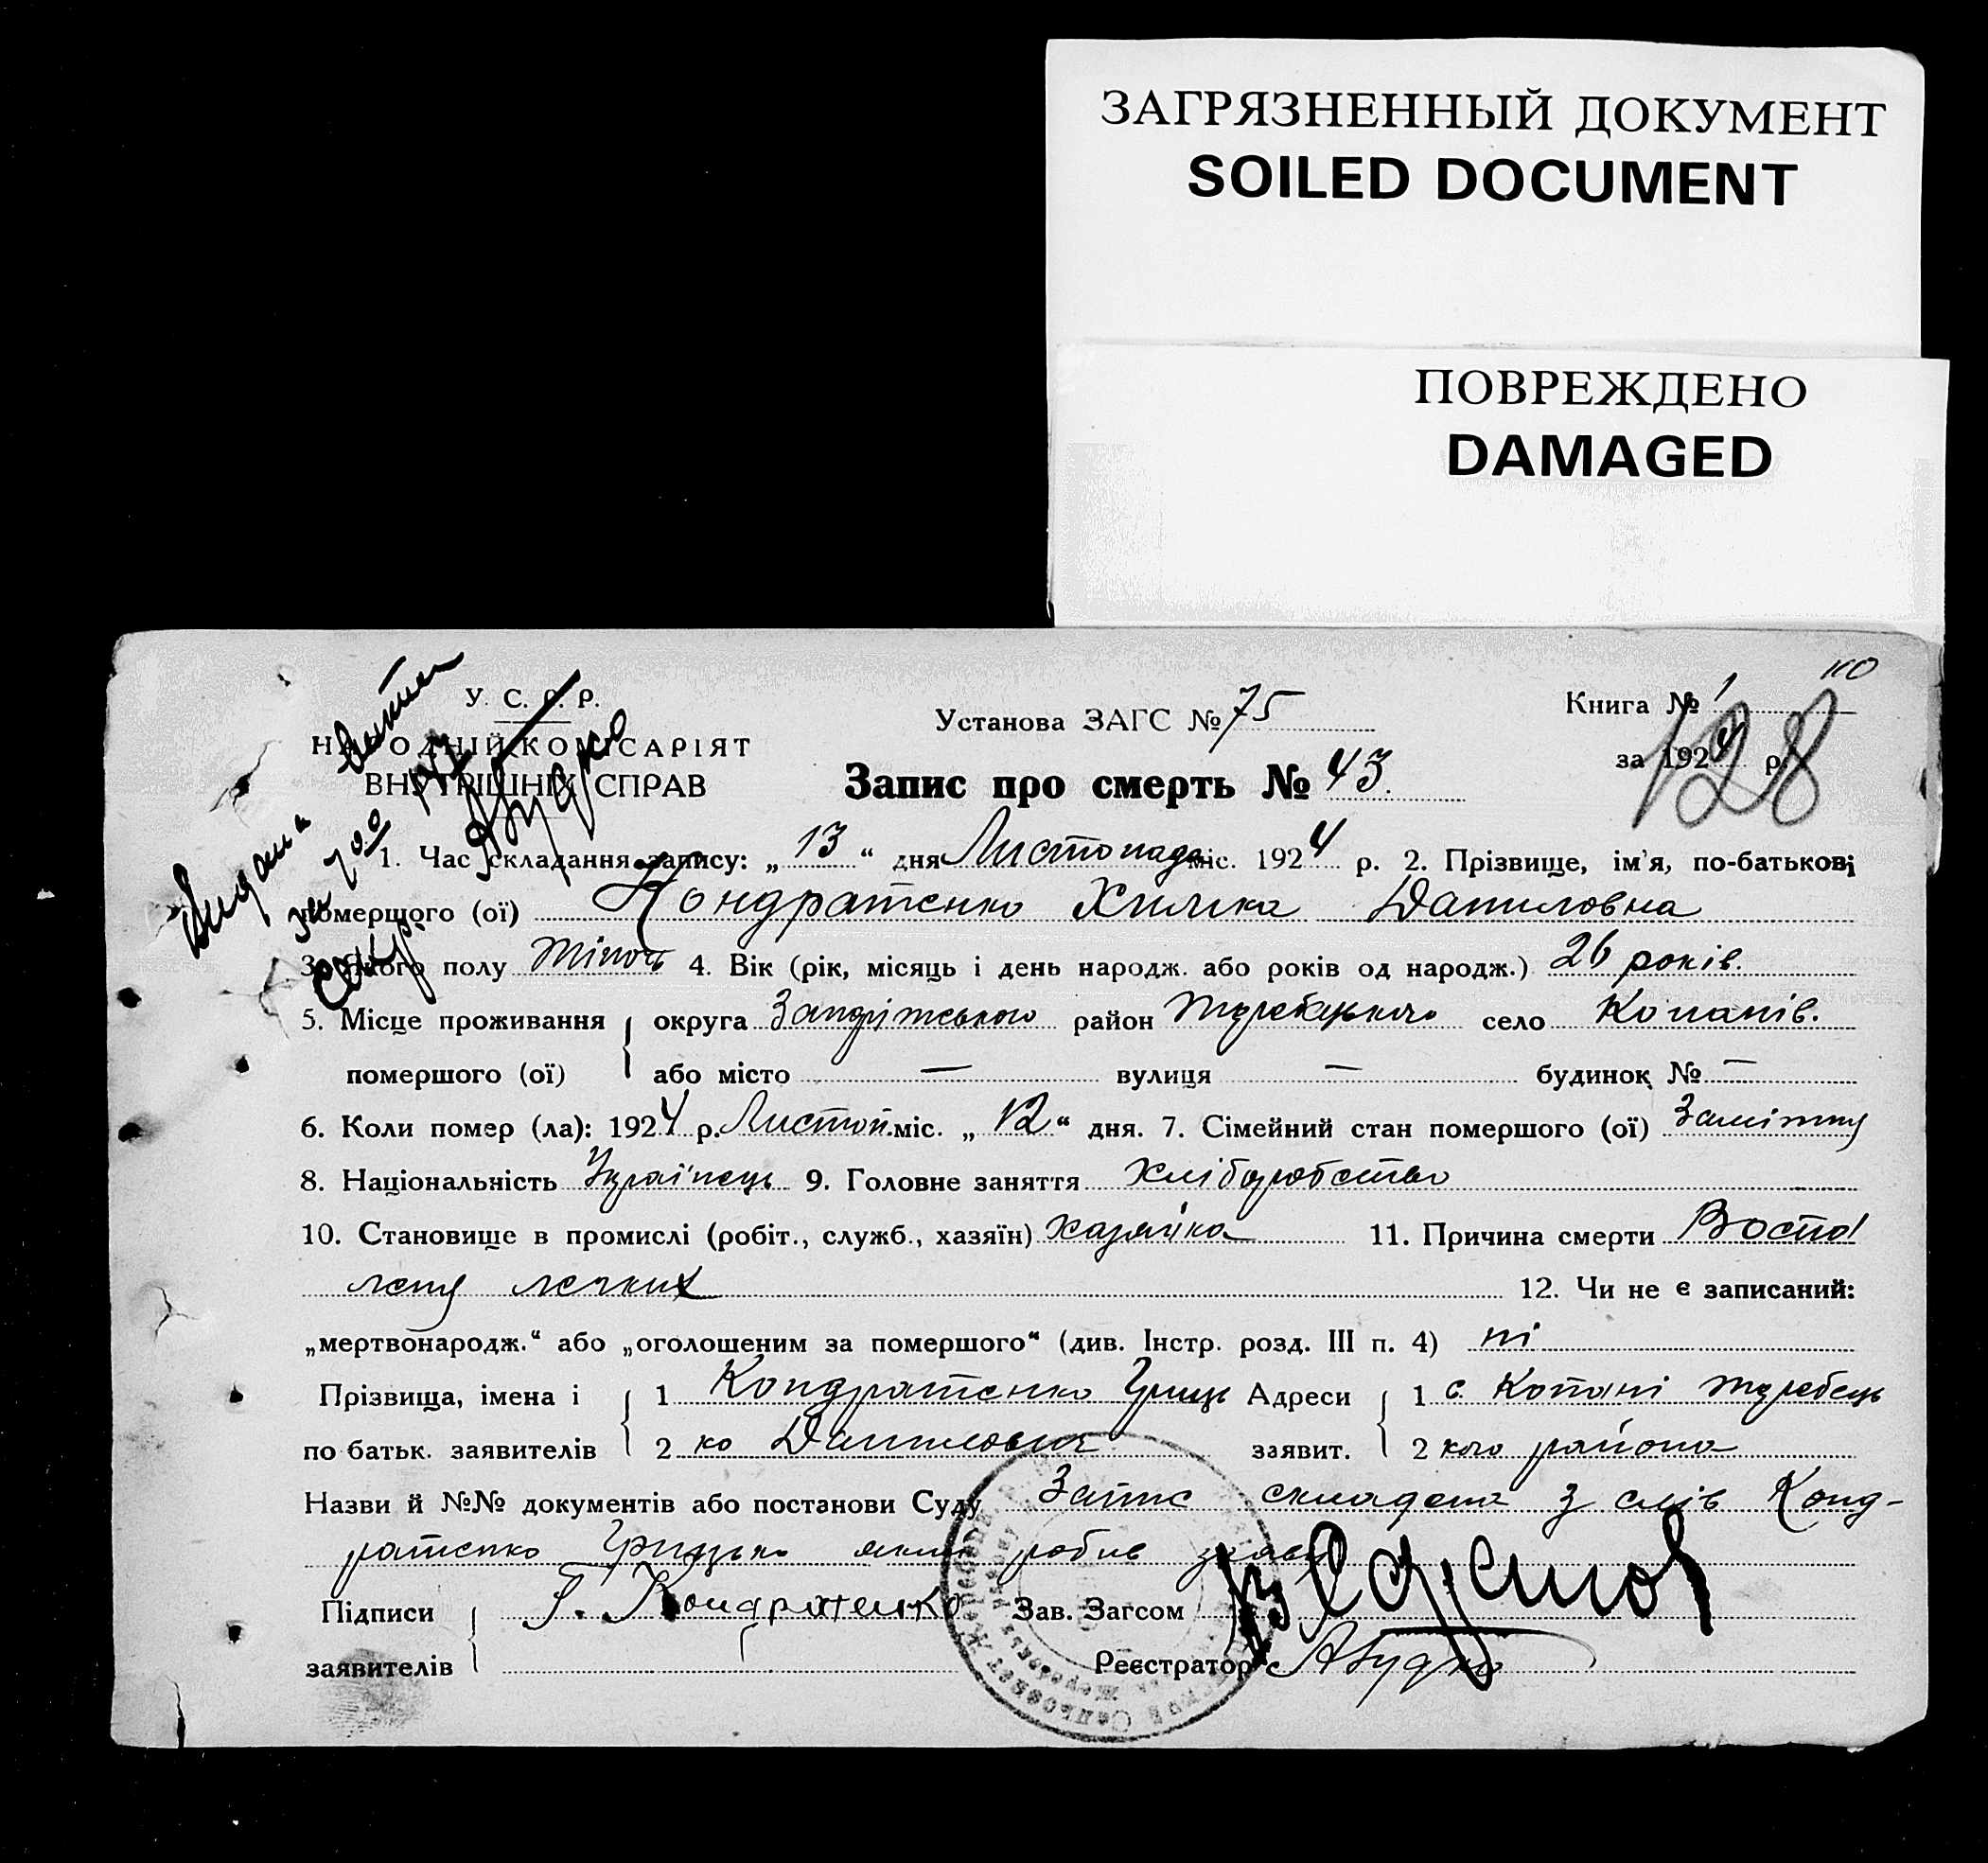 ЗАГРЯЗНЕННЫЙ ДОКУМЕНТ
SOILED DOCUMENT
ПОВРЕЖДЕНО
DAMAGED
У. С. Р. Р.
НАРОДНІЙ КОМІСАРІЯТ
ВНУТРІШНІХ СПРАВ
Установа ЗАГС № 75
Книга № 1
за 1924 р.
128
Запис про смерть № 43.
1. Час складання запису: „ 13 “ дня Листопада міс. 1924 р. 2. Прізвище, ім'я, по-батькові
помершого (ої) Кондратенко Даниловна
3. Якого полу 4. Вік (рік, місяць і день народж. або років од народж.) 26 років.
5. Місце проживання округа район село Копанів.
помершого (ої) або місто — вулиця — будинок № —
6. Коли помер (ла): 1924 р. Листоп. міс. „ 12 “ дня. 7. Сімейний стан помершого (ої) Заміжня
8. Національність Українець 9. Головне заняття хліборобство
10. Становище в промислі (робіт., служб., хазяїн) хазяйка 11. Причина смерти Воспа
леня легких 12. Чи не є записаний:
„мертвонародж.“ або „оголошеним за помершого“ (див. Інстр. розд. III п. 4) ні
Прізвища, імена і 1 Кондратенко Гриць Адреси 1 с. Копані Жеребець
по батьк. заявителів 2 ко Данилович заявит. 2 кого района
Назви й №№ документів або постанови Суду Запис складено з слів Конд-
ратенко Грицько який робив заяву
Підписи Г. Кондратенко Зав. Загсом
заявителів Реєстратор